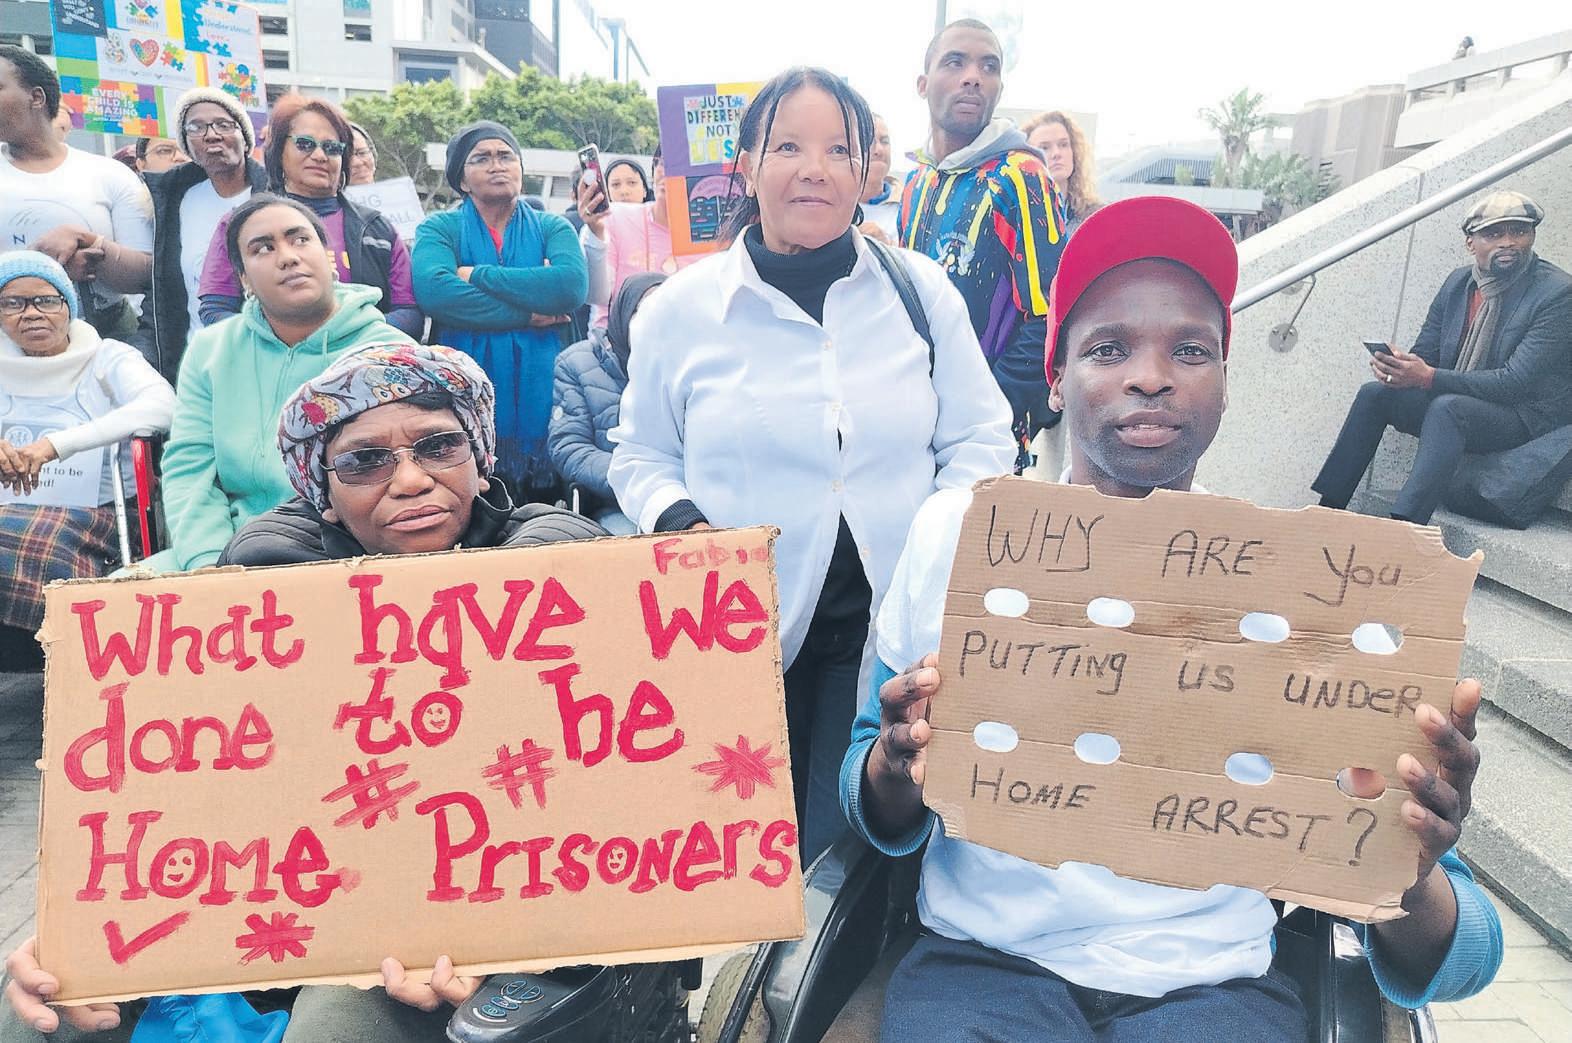 EVERY
CHILD IS
AMAZING
JUST
DIFFERENT
NOT
The
N
HG
ALL
nt to be
ed!
Fabio
What have We
done to be
# # *
Home Prisoners
✓ *
WHY ARE You
PUTTING US UNDER
HOME ARREST?